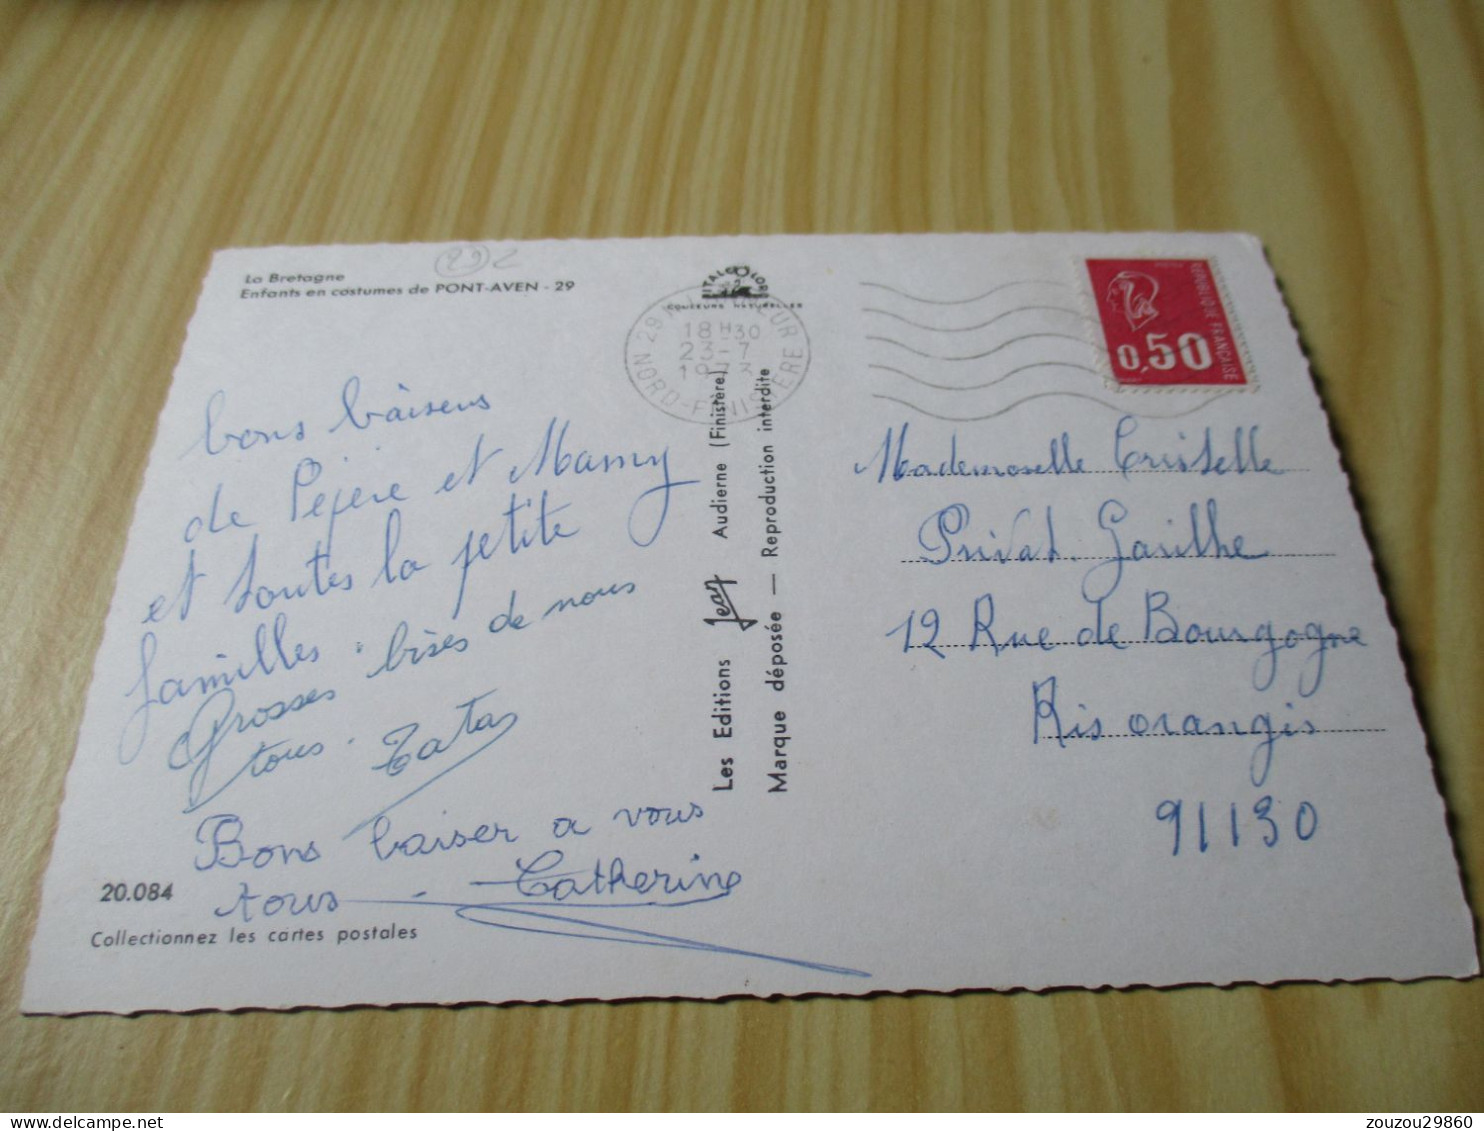 La Bretagne
Enfants en costumes de PONT-AVEN - 29
292
VITALCOLOR
COULEURS NATURELLES
18H30
23-7
1973
NORD-FINISTERE
REPUBLIQUE FRANÇAISE
0,50
bons baisers
de Pépère et Mamy
et toutes la petite
familles.
Grosses bises de nous
tous. Tata
Bons baiser a vous
tous - Catherine
20.084
Collectionnez les cartes postales
Les Editions Jean Audierne (Finistère)
Marque déposée — Reproduction interdite
Mademoselle Cristelle
Privat. Gailhe
12 Rue de Bourgogne
Ris orangis
91130
zouzou29860